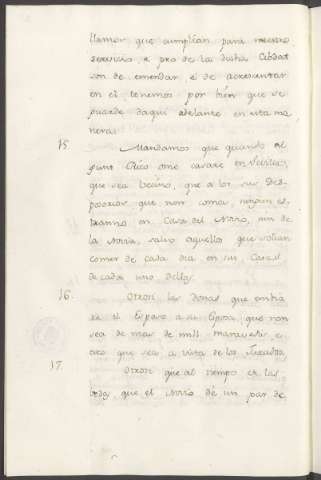 llamos que cumplían para nuestro
servicio, e pro de la dicha Cibdat
son de emendar, e de acresentar
en el tenemos por bién que se
guarde daqui adelante en esta ma
nera:
15. Mandamos que quando al
gunt Rico ome casare en Sevilla,
que sea becino, que a los sus Des-
posorios que non coma ningun es
tranno en Casa del Novio, nin de
la Novia, salvo aquellos que solian
comer de cada dia en sus Casas
de cada uno dellos.
16. Otrosi las donas que embia
re el Esposo a su Esposa que non
sea de mas de mill maravedis e
esto que sea a vista de los
17. Otrosi que al tiempo en las
bodas, que el Novio dé un par de